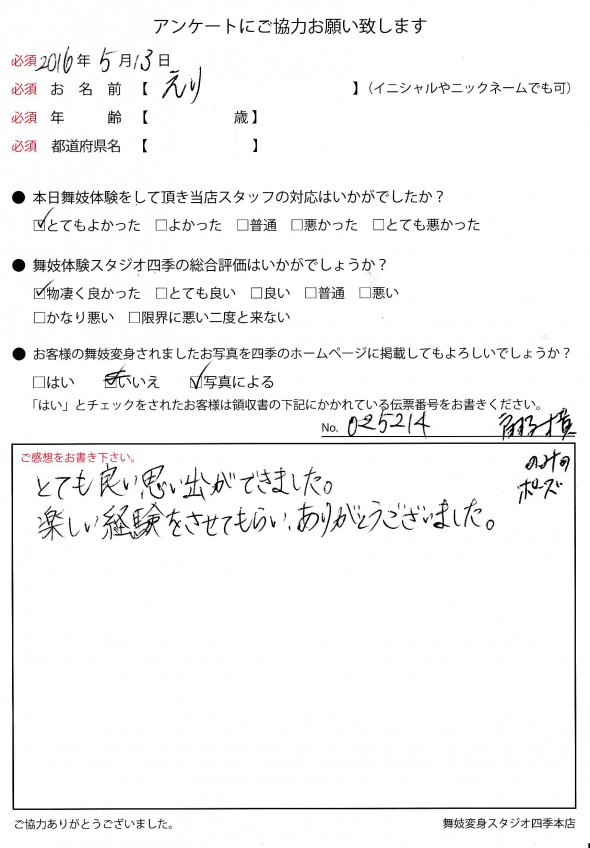 アンケートにご協力お願い致します
必須 2016年 5月13日
必須 お名前【 えり 】（イニシャルやニックネームでも可）
必須 年齢【 歳】
必須 都道府県名【 】
● 本日舞妓体験をして頂き当店スタッフの対応はいかがでしたか？
☑とてもよかった □よかった □普通 □悪かった □とても悪かった
● 舞妓体験スタジオ四季の総合評価はいかがでしょうか？
☑物凄く良かった □とても良い □良い □普通 □悪い
□かなり悪い □限界に悪い二度と来ない
● お客様の舞妓変身されましたお写真を四季のホームページに掲載してもよろしいでしょうか？
□はい □いいえ ☑写真による
「はい」とチェックをされたお客様は領収書の下記にかかれている伝票番号をお書きください。
No. 025214
ご感想をお書き下さい。
のみの
ポーズ
とても良い思い出ができました。
楽しい経験をさせてもらい、ありがとうございました。
ご協力ありがとうございました。
舞妓変身スタジオ四季本店